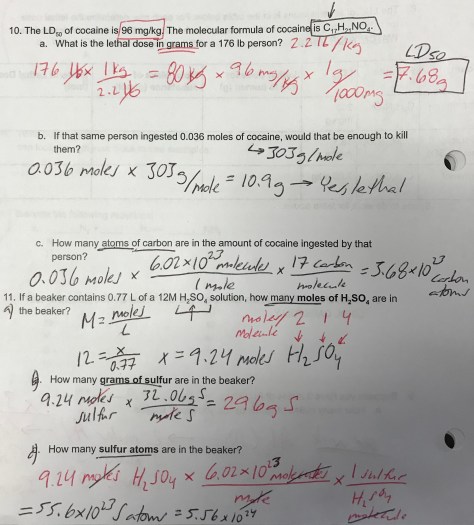 10. The LD50 of cocaine is 96 mg/kg. The molecular formula of cocaine is C17H21NO4.
a. What is the lethal dose in grams for a 176 lb person? 2.2 lb/kg
LD50
176 lbs x 1kg / 2.2 lb = 80 kg x 96 mg/kg x 1g / 1000mg = 7.68g
b. If that same person ingested 0.036 moles of cocaine, would that be enough to kill
them?
↳ 303g/mole
0.036 moles x 303 g/mole = 10.9g → Yes, lethal
c. How many atoms of carbon are in the amount of cocaine ingested by that
person?
0.036 moles x 6.02x10^23 molecules / 1 mole x 17 carbon / molecule = 3.68x10^23 carbon atoms
11. If a beaker contains 0.77 L of a 12M H2SO4 solution, how many moles of H2SO4 are in
a) the beaker?
M = moles / L
moles / molecule 2 1 4
12 = x / 0.77 x = 9.24 moles H2SO4
How many grams of sulfur are in the beaker?
9.24 moles sulfur x 32.06g S / mole S = 296g S
How many sulfur atoms are in the beaker?
9.24 moles H2SO4 x 6.02x10^23 molecules / mole x 1 sulfur / H2SO4 molecule
= 55.6x10^23 S atoms = 5.56x10^24